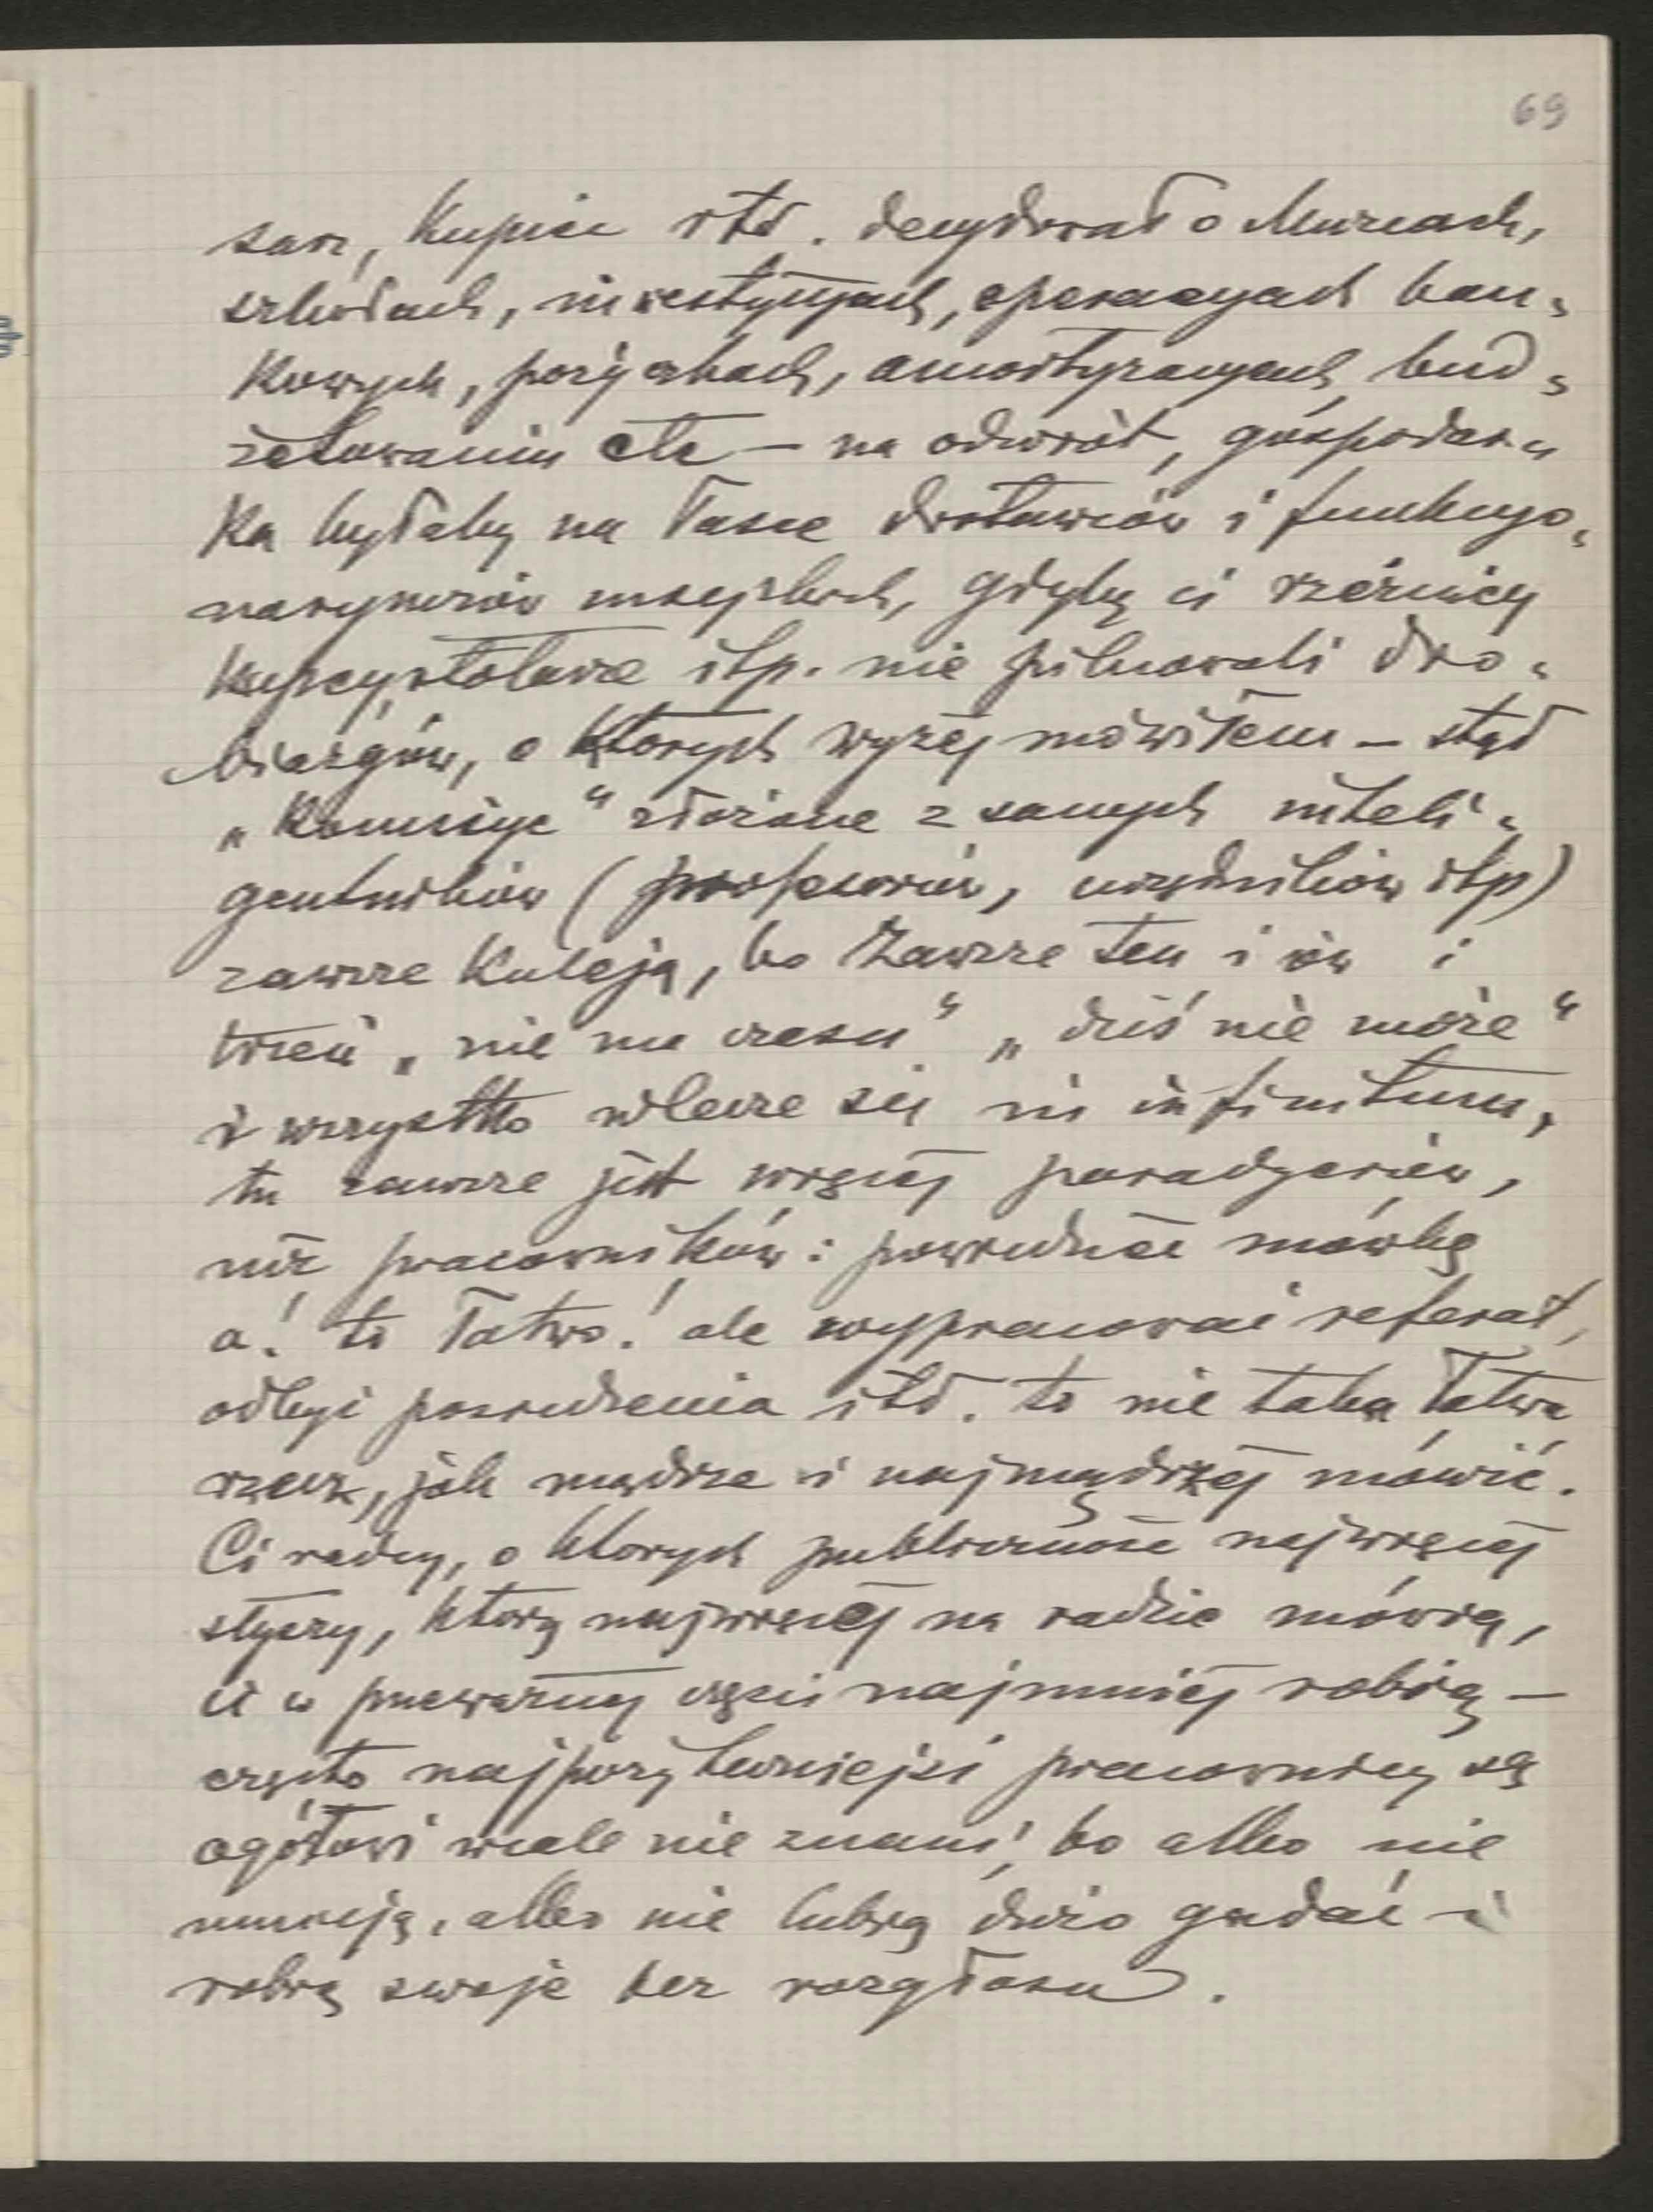 69
sarz, Kupiec itd. decydował o Muzeach,
szkołach, inwestycyjach, operacyach ban-
kowych, pożyczkach, amortyzacyach, bud-
żetowaniu etc — na odwrót, gospodar-
ka byłaby na łasce dostawców i funkcyo-
naryuszów miejskich, gdyby ci rzeźnicy
kupcy, stolarze itp. nie pilnowali dro-
biazgów, o których wyżej mówiłem — stąd
„Komisye" złożone z samych inteli-
gentników (profesorów, urzędników itp)
zawsze kuleją, bo zawsze ten i ów i
trzeci „nie ma czasu" „dziś nie może"
i wszystko wlecze się in infinitum,
tu zawsze jest więcej paradzerów,
niż pracowników: powiedzieć mówkę
a! to łatwo! ale wypracować referat,
odbyć posiedzenia itd. to nie taka łatwa
rzecz, jak mądrze i najmądrzej mówić.
Ci radcy, o których publiczność najwięcej
słyszy, którzy najwięcej na radzie mówią,
ci w przeważnej części najmniej robią —
często najpożyteczniejsi pracownicy są
ogółowi wcale nie znani, bo albo nie
umieją, albo nie lubią dużo gadać i
robią swoje bez rozgłosu.